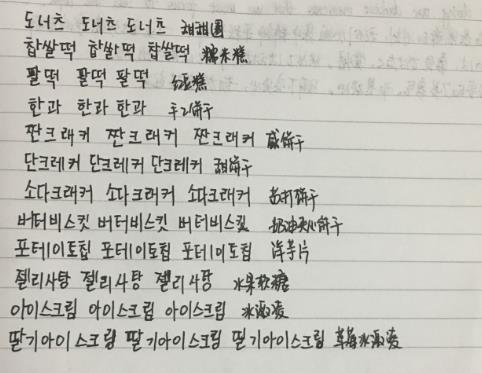 도너츠 도너츠 도너츠 甜甜圈
찹쌀떡 찹쌀떡 찹쌀떡 糯米糕
팥떡 팥떡 팥떡 豆糕
한과 한과 한과 手工饼干
짠크래커 짠크래커 짠크래커 咸饼干
단크레커 단크레커 단크레커 甜饼干
소다크래커 소다크래커 소다크래커 苏打饼干
버터비스킷 버터비스킷 버터비스킷 奶油夹心饼干
포테이토칩 포테이토칩 포테이토칩 洋芋片
젤리사탕 젤리사탕 젤리사탕 水果软糖
아이스크림 아이스크림 아이스크림 冰激凌
딸기아이스크림 딸기아이스크림 딸기아이스크림 草莓冰激凌